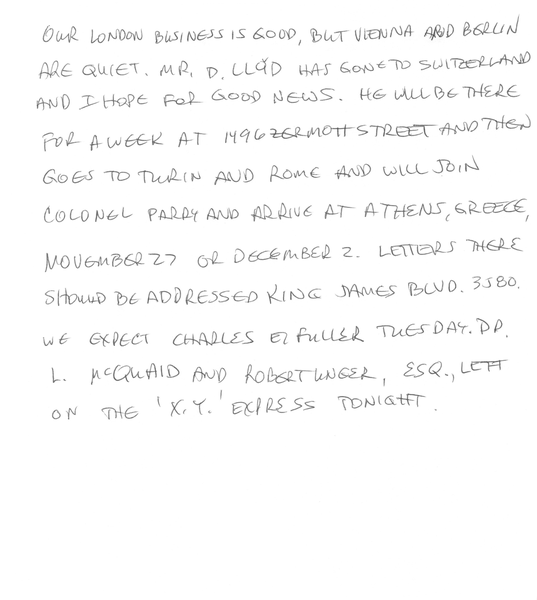 OUR LONDON BUSINESS IS GOOD, BUT VIENNA AND BERLIN
ARE QUIET. MR. D. LLOYD HAS GONE TO SWITZERLAND
AND I HOPE FOR GOOD NEWS. HE WILL BE THERE
FOR A WEEK AT 1496 ZERMOTT STREET AND THEN
GOES TO TURIN AND ROME AND WILL JOIN
COLONEL PARRY AND ARRIVE AT ATHENS, GREECE,
NOVEMBER 27 OR DECEMBER 2. LETTERS THERE
SHOULD BE ADDRESSED KING JAMES BLVD. 3580.
WE EXPECT CHARLES E. FULLER TUESDAY. DR.
L. MCQUAID AND ROBERT UNGER, ESQ., LEFT
ON THE 'X.Y.' EXPRESS TONIGHT.